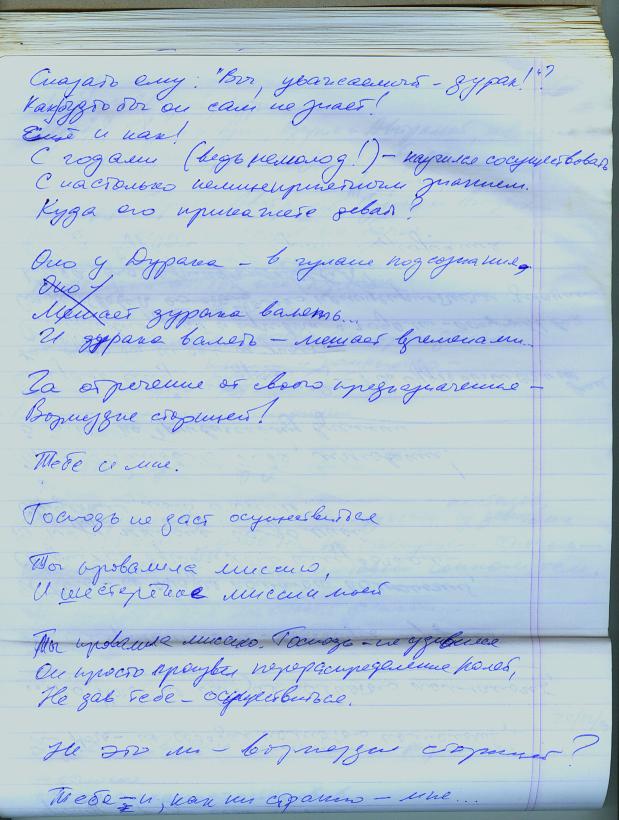 Сказать ему: "Вы, уважаемый - дурак!"?
Как будто бы он сам не знает!
Ещё и как!
С годами (ведь немолод!) - научился сосуществовать
С настолько нелицеприятным знанием.
Куда его прикажете девать?
Оно у Дурака - в чулане подсознания,
Оно -
Мешает дурака валять...
И дурака валять - мешает временами...
За отречение от своего предназначения -
Возмездие сторицей!
Тебе и мне.
Господь не даст осуществиться
Ты провалила миссию,
И шестерёнка миссии моей
Ты провалила миссию. Господь - не удивился
Он просто произвёл перераспределение ролей,
Не дав тебе - осуществиться.
Не это ли - возмездие сторицей?
Тебе - и, как ни странно - мне...